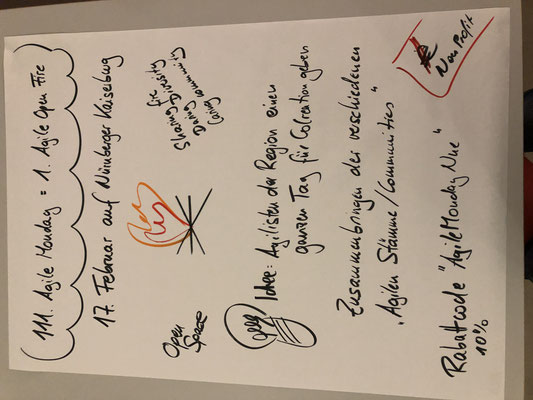 111. Agile Monday = 1. Agile Open Fire
17. Februar auf Nürnberger Kaiserburg
Open
Space
Fire
Sharing Diversity
Daring Community
Caring
Idee: Agilisten der Region einen
ganzen Tag für CoCreation geben
Zusammenbringen der verschiedenen
„Agilen Stämme/Communities“
Non Profit
Rabattcode "AgileMonday Nue"
10%